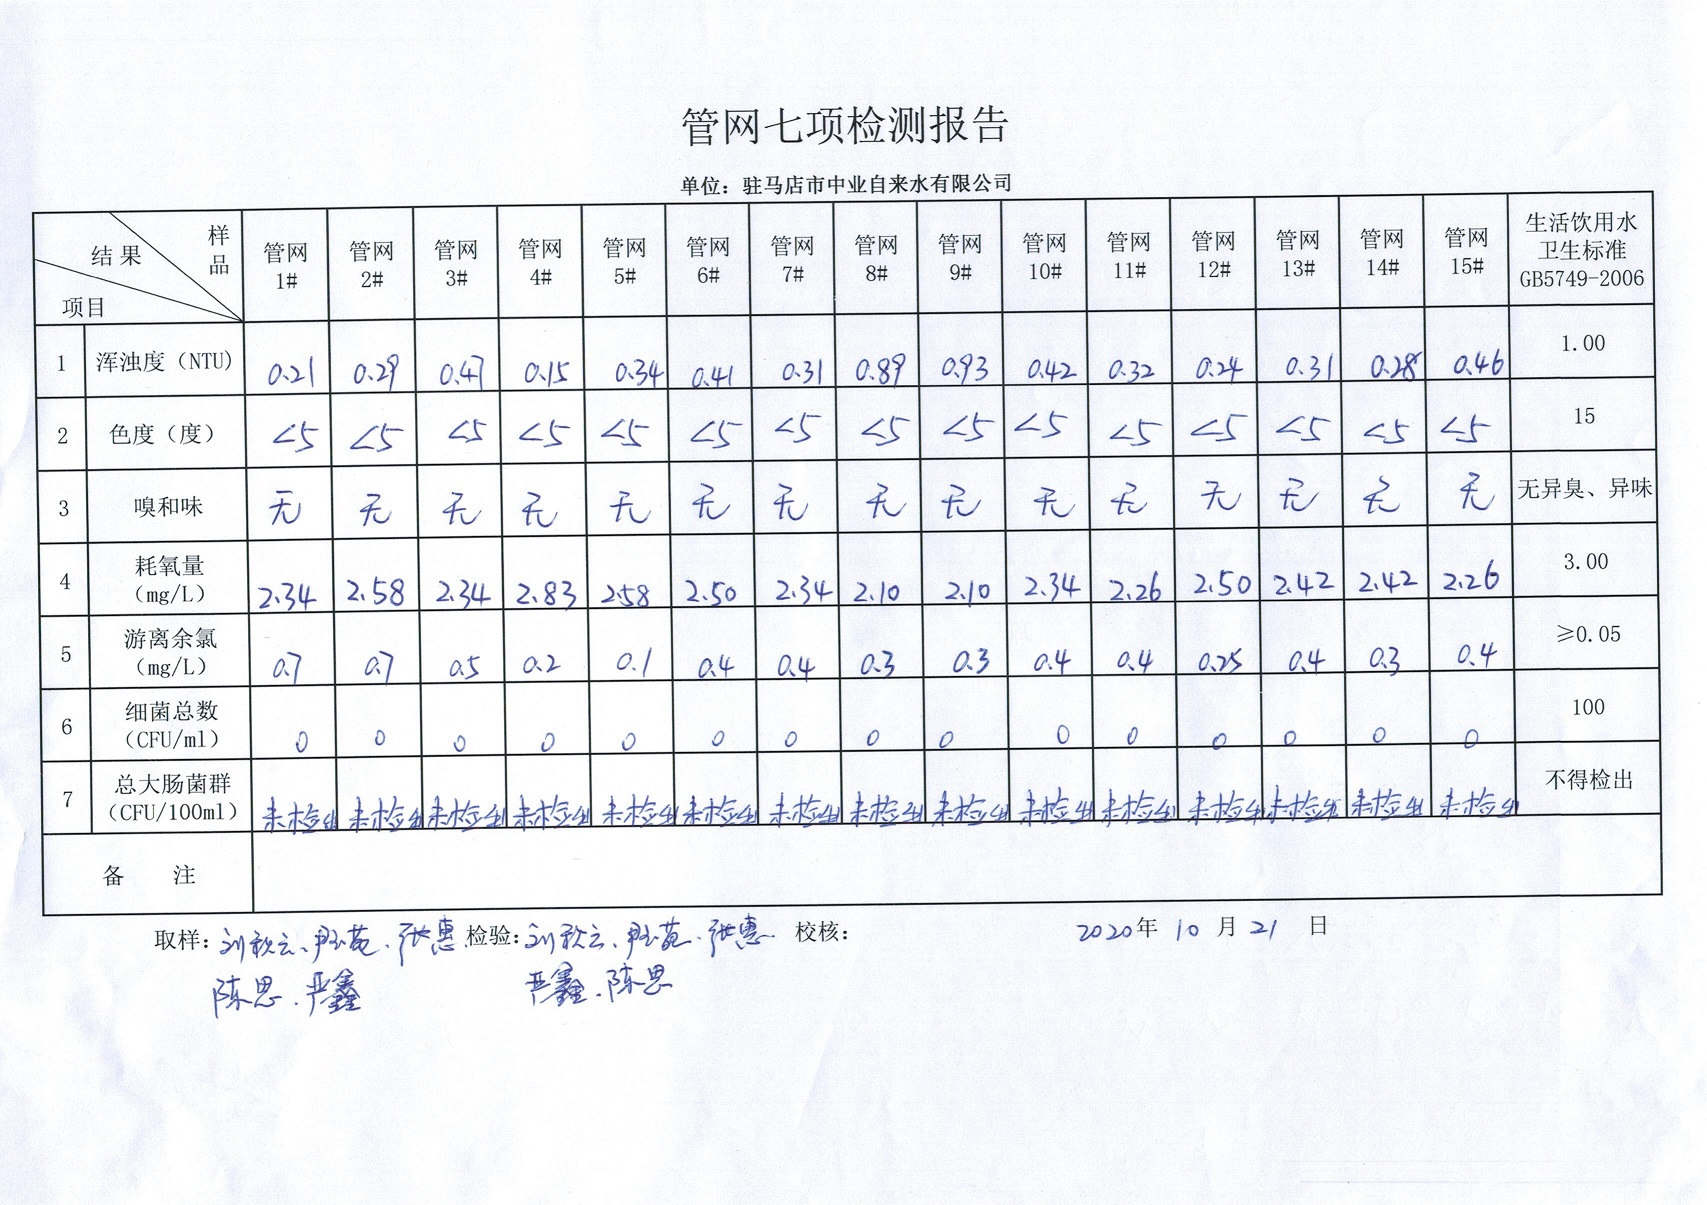 管网七项检测报告
单位：驻马店市中业自来水有限公司
结果 样品 项目 管网1# 管网2# 管网3# 管网4# 管网5# 管网6# 管网7# 管网8# 管网9# 管网10# 管网11# 管网12# 管网13# 管网14# 管网15# 生活饮用水卫生标准GB5749-2006
1 浑浊度（NTU) 0.21 0.29 0.47 0.15 0.34 0.41 0.31 0.89 0.93 0.42 0.32 0.24 0.31 0.28 0.46 1.00
2 色度（度） <5 <5 <5 <5 <5 <5 <5 <5 <5 <5 <5 <5 <5 <5 <5 15
3 嗅和味 无 无 无 无 无 无 无 无 无 无 无 无 无 无 无 无异臭、异味
4 耗氧量（mg/L） 2.34 2.58 2.34 2.83 2.58 2.50 2.34 2.10 2.10 2.34 2.26 2.50 2.42 2.42 2.26 3.00
5 游离余氯（mg/L） 0.7 0.7 0.5 0.2 0.1 0.4 0.4 0.3 0.3 0.4 0.4 0.25 0.4 0.3 0.4 ≥0.05
6 细菌总数（CFU/ml） 0 0 0 0 0 0 0 0 0 0 0 0 0 0 0 100
7 总大肠菌群（CFU/100ml） 未检出 未检出 未检出 未检出 未检出 未检出 未检出 未检出 未检出 未检出 未检出 未检出 未检出 未检出 未检出 不得检出
备 注
取样：刘秋云、张惠 检验：刘秋云、张惠 校核： 2020年 10 月 21 日
陈思、严鑫 严鑫、陈思